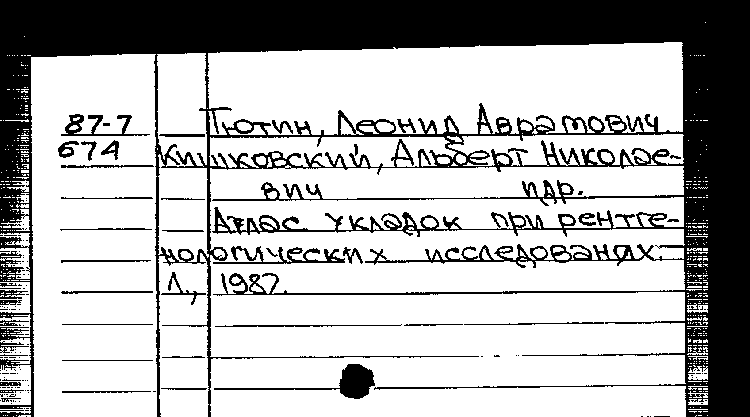 87-7 Тютин, Леонид Аврамович
674 Кишковский, Альберт Николае-
вич и др.
Атлас укладок при рентге-
нологических исследованиях.
Л., 1987.